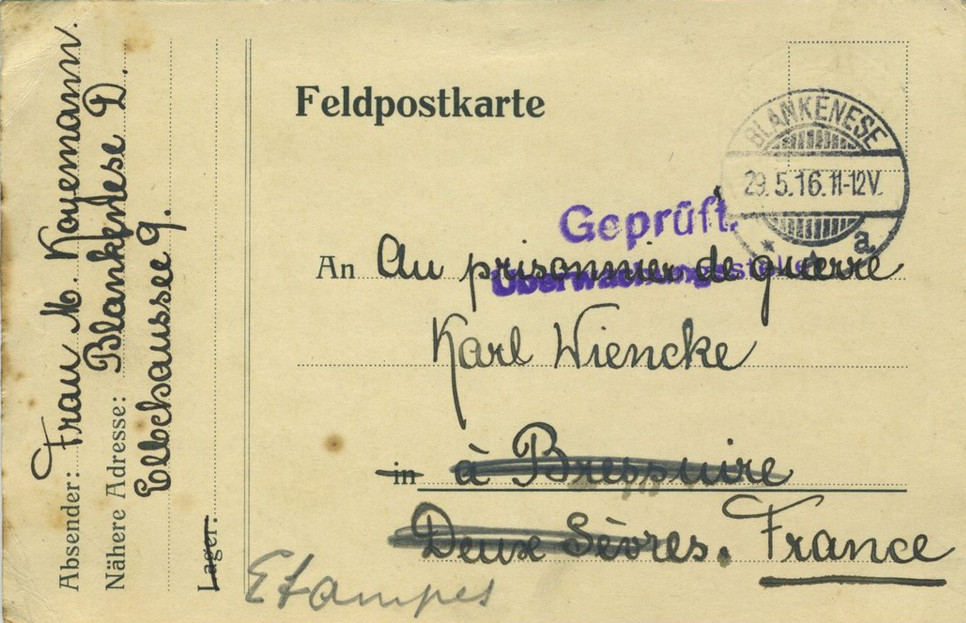 Absender: Frau M. Koyemann.
Nähere Adresse: Blankenese D.
Elbchaussee 9.
Lager:
Feldpostkarte
BLANKENESE
29.5.16.11-12V.
a.
Geprüft.
Überwachungsstelle
An Au prisonnier de guerre
Karl Wiencke
in à Bressuire
Deux Sèvres. France
Etampes